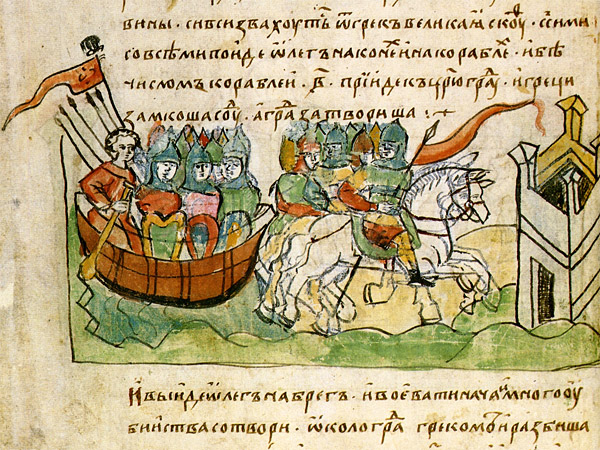 вины · си вси звахоутⸯ ѿ грекъ великаꙗ скоуѳ · ссими
со всѣми поиде ѿлегъ на конеⷯ и на кораблеⷯ · и бѣ
числомъ кораблеи · ҂в · прїиде къ црюграⷣ · и греци
замкоша соуⷣ · а граⷣ затвориша ·
И выиде ѿлегъ на брегъ · и воевати нача и много оу
бииства сотвори · ѿколо граⷣ грекомъ и разбиша